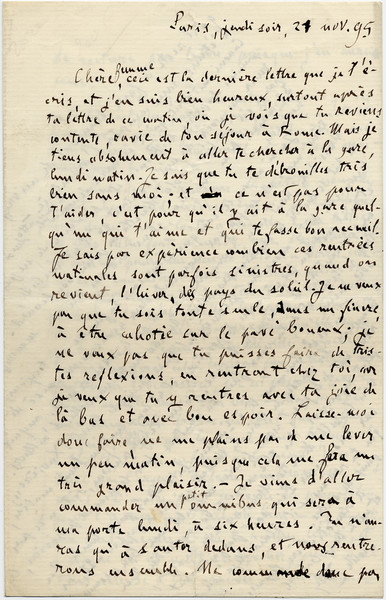 Paris, jeudi soir, 21 nov. 95
Chère femme, ceci est la dernière lettre que je t'é-
cris, et j'en suis bien heureux, surtout après
ta lettre de ce matin, où je vois que tu reviens
contente, ravie de ton séjour à Rome. Mais je
tiens absolument à aller te chercher à la gare,
lundi matin. Je sais que tu te débrouilles très
bien sans moi; et ce n'est pas pour
t'aider, c'est pour qu'il y ait à la gare quel-
qu'un qui t'aime et qui te fasse bon accueil.
Je sais par expérience combien ces rentrées
matinales sont parfois sinistres, quand on
revient, l'hiver, des pays du soleil. Je ne veux
pas que tu sois toute seule, dans un fiacre,
à être cahotée sur le pavé boueux; je
ne veux pas que tu puisses faire de tris-
tes réflexions, en rentrant chez toi, car
je veux que tu y rentres avec ta joie de
là bas et avec bon espoir. Laisse-moi
donc faire ne me plains pas de me lever
un peu matin, puisque cela me fera un
très grand plaisir. — Je viens d'aller
commander un petit omnibus qui sera à
ma porte lundi, à six heures. Tu n'au-
ras qu'à sauter dedans, et nous rentre-
rons ensemble. Ne commande donc pas